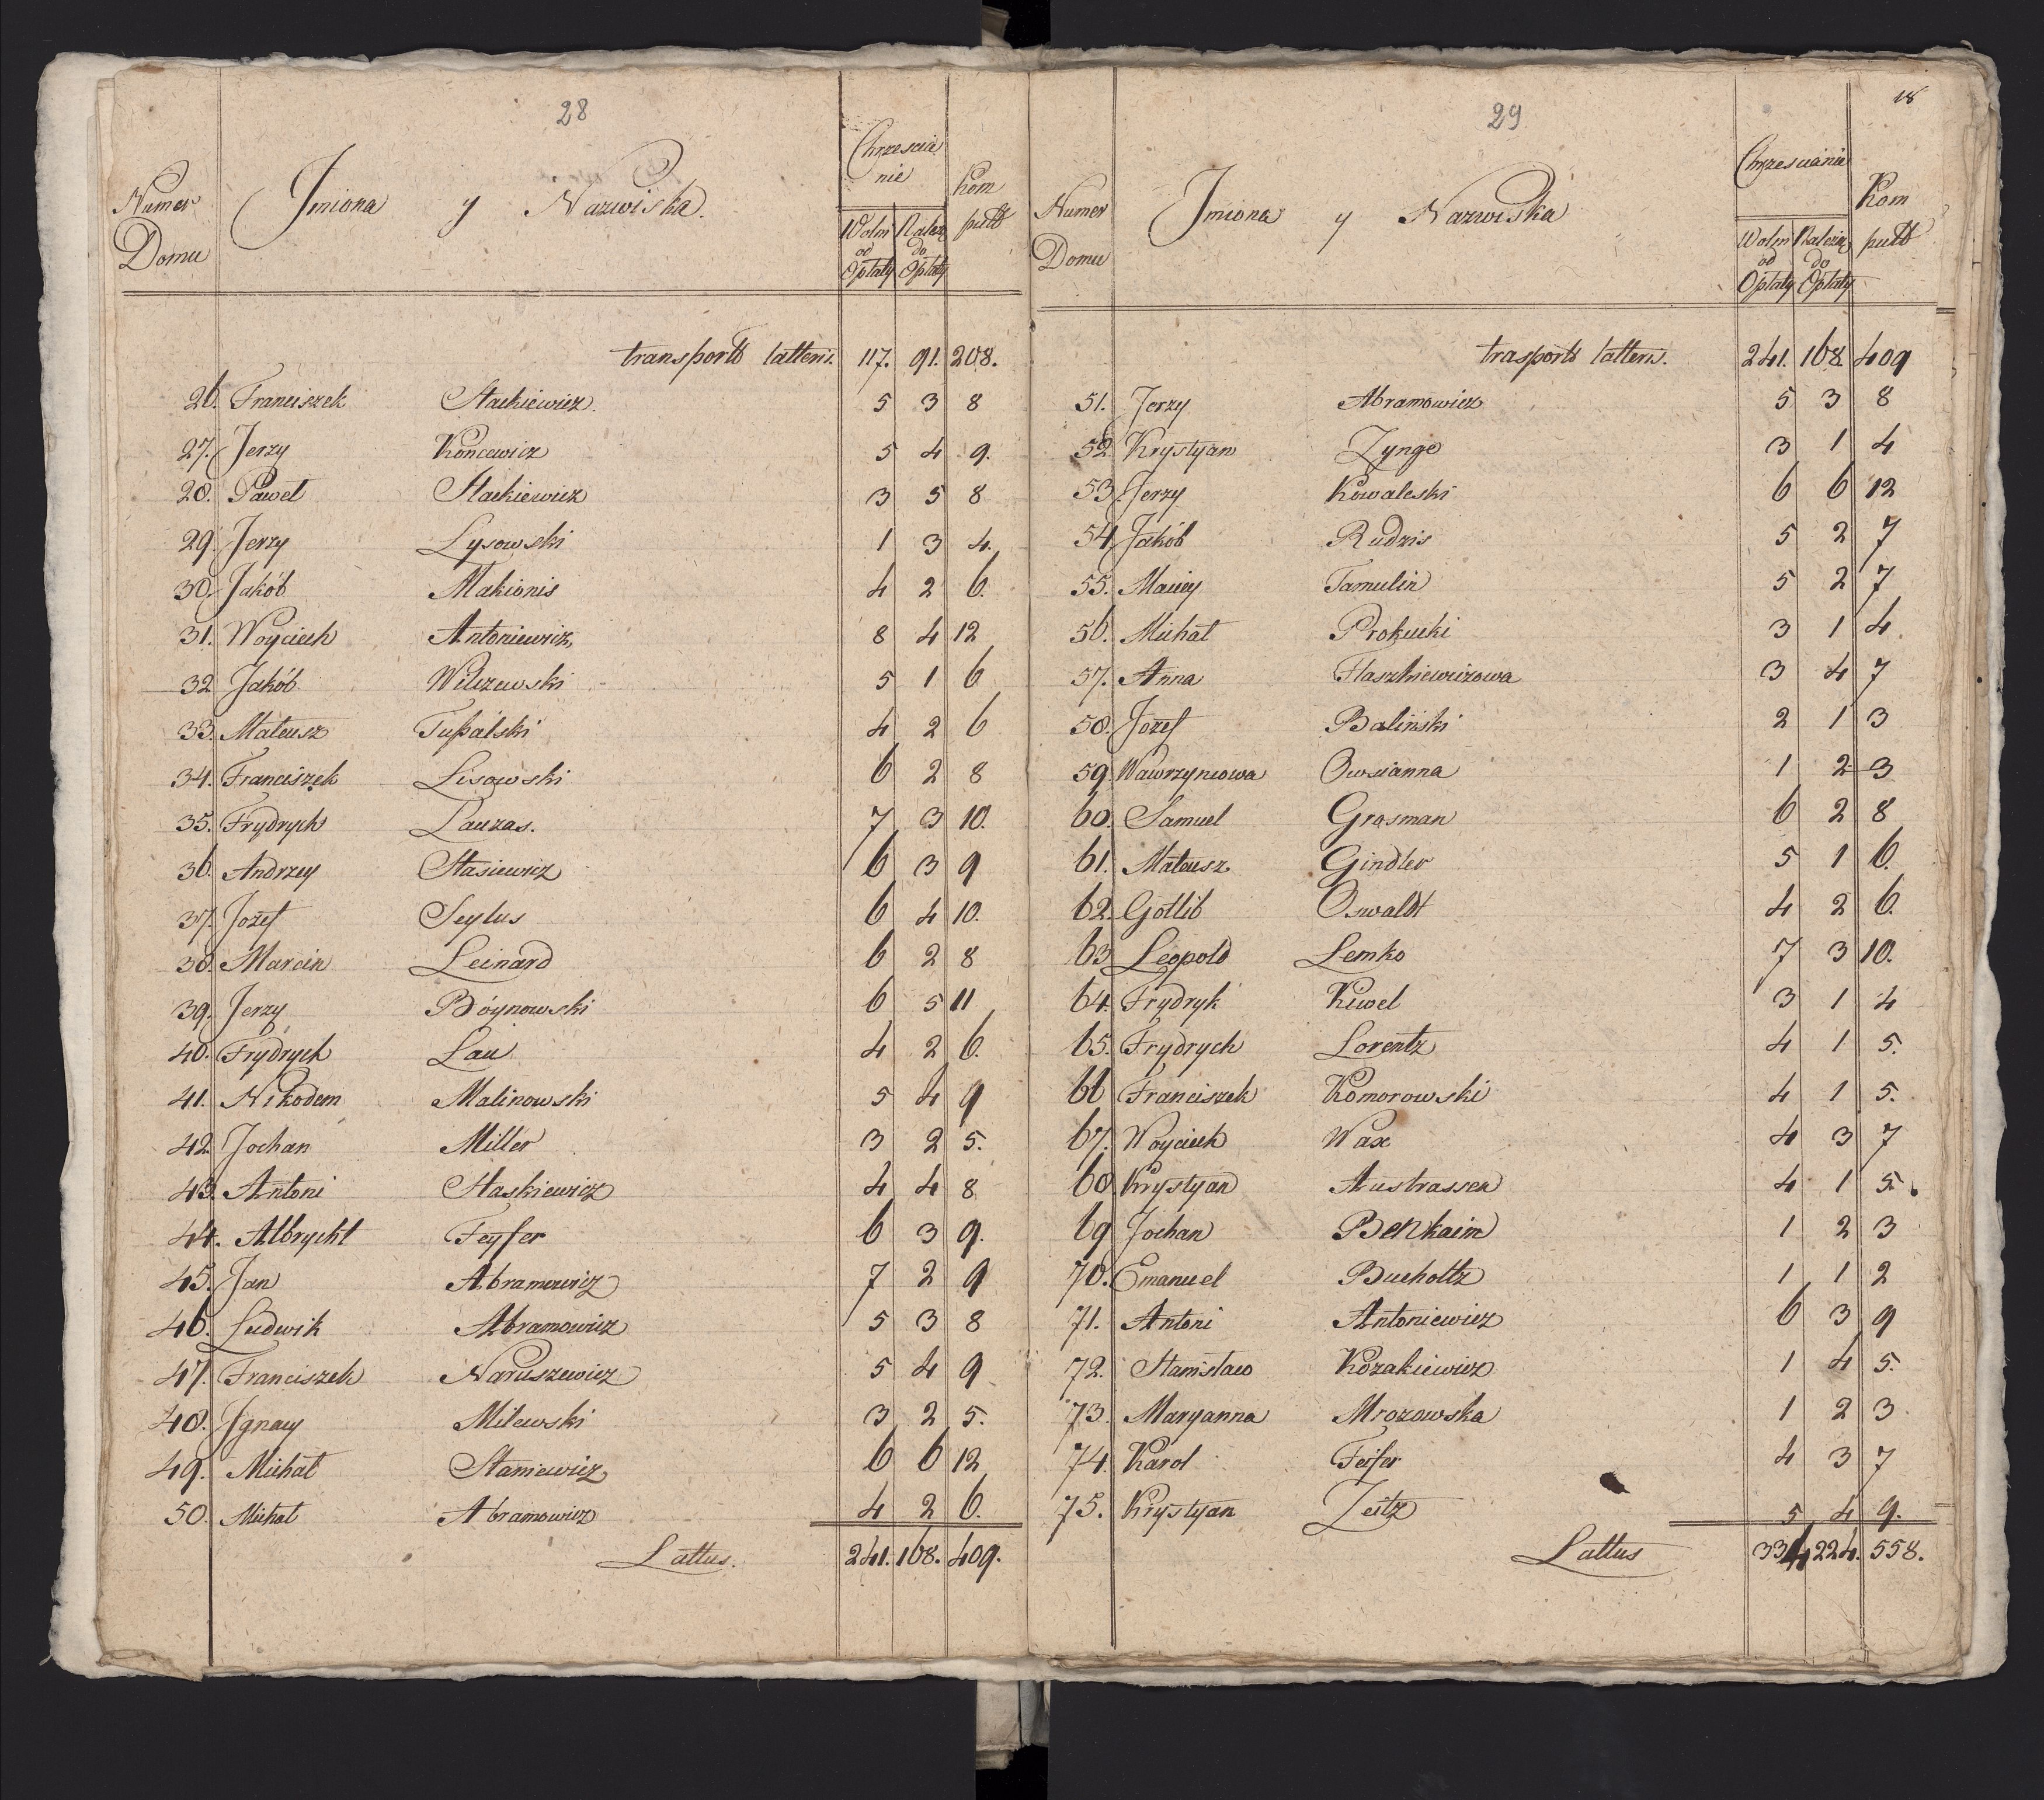 28
Numer Domu Jmiona y Nazwiska. Chrzescia nie Kom putt
Wolni od Opłaty Należą do Opłaty
transportt latteris. 117. 91. 208.
26. Franciszek Stackiewicz. 5 3 8
27. Jerzy Koncewicz 5 4 9.
28. Paweł Stackiewicz 3 5 8
29. Jerzy Lysowski 1 3 4.
30. Jakób Makionis 4 2 6.
31. Woyciech Antoniewicz 8 4 12
32. Jakób Wilczewski 5 1 6
33. Mateusz Tußalski 4 2 6
34. Franciszek Lisowski 6 2 8
35. Frydrych Lauzas. 7 3 10.
36. Andrzey Stasiewicz 6 3 9
37. Jozef Seylus 6 4 10.
38. Marcin Leinard 6 2 8
39. Jerzy Bóynowski 6 5 11
40. Frydrych Lau 4 2 6.
41. Nikodem Malinowski 5 4 9
42. Jochan Miller 3 2 5.
43. Antoni Staskiewicz 4 4 8
44. Albrycht Feyfer 6 3 9.
45. Jan Abramowicz 7 2 9
46. Ludwik Abramowicz 5 3 8
47. Franciszek Naruszewicz 5 4 9
48. Jgnacy Milewski 3 2 5.
49. Michał Staniewicz 6 6 12
50. Michał Abramowicz 4 2 6.
Lattus. 241. 168. 409.
18
29
Numer Domu Jmiona y Nazwiska Chrzescianie Kom putt
Wolni od Opłaty Należą do Opłaty
trasportt latteris. 241. 168. 409
51. Jerzy Abramowicz 5 3 8
52. Krystyan Zynge 3 1 4
53. Jerzy Kowaleski 6 6 12
54. Jakób Rudzis 5 2 7
55. Maciey Tamulin 5 2 7
56. Michał Prokucki 3 1 4.
57. Anna Staszkiewiczowa 3 4 7
58. Jozef Baliński 2 1 3
59. Wawrzyncowa Owsianna 1 2 3
60. Samuel Grosman 6 2 8
61. Mateusz Gindler 5 1 6.
62. Gotlib Oswaldt 4 2 6.
63. Leopold Lemko 7 3 10.
64. Frydryk Kiwel 3 1 4
65. Frydrych Lorentz 4 1 5.
66. Franciszek Komorowski 4 1 5.
67. Woyciech Wax 4 3 7
68. Krystyan Austrassen 4 1 5.
69. Jochan Benkaim 1 2 3
70. Emanuel Bucholtz 1 1 2
71. Antoni Antoniewicz 6 3 9
72. Stanisław Kozakiewicz 1 4 5.
73. Maryanna Mrozowska 1 2 3
74. Karol Feifer 4 3 7
75. Krystyan Zeitz 5 4 9.
Lattus 334 224. 558.